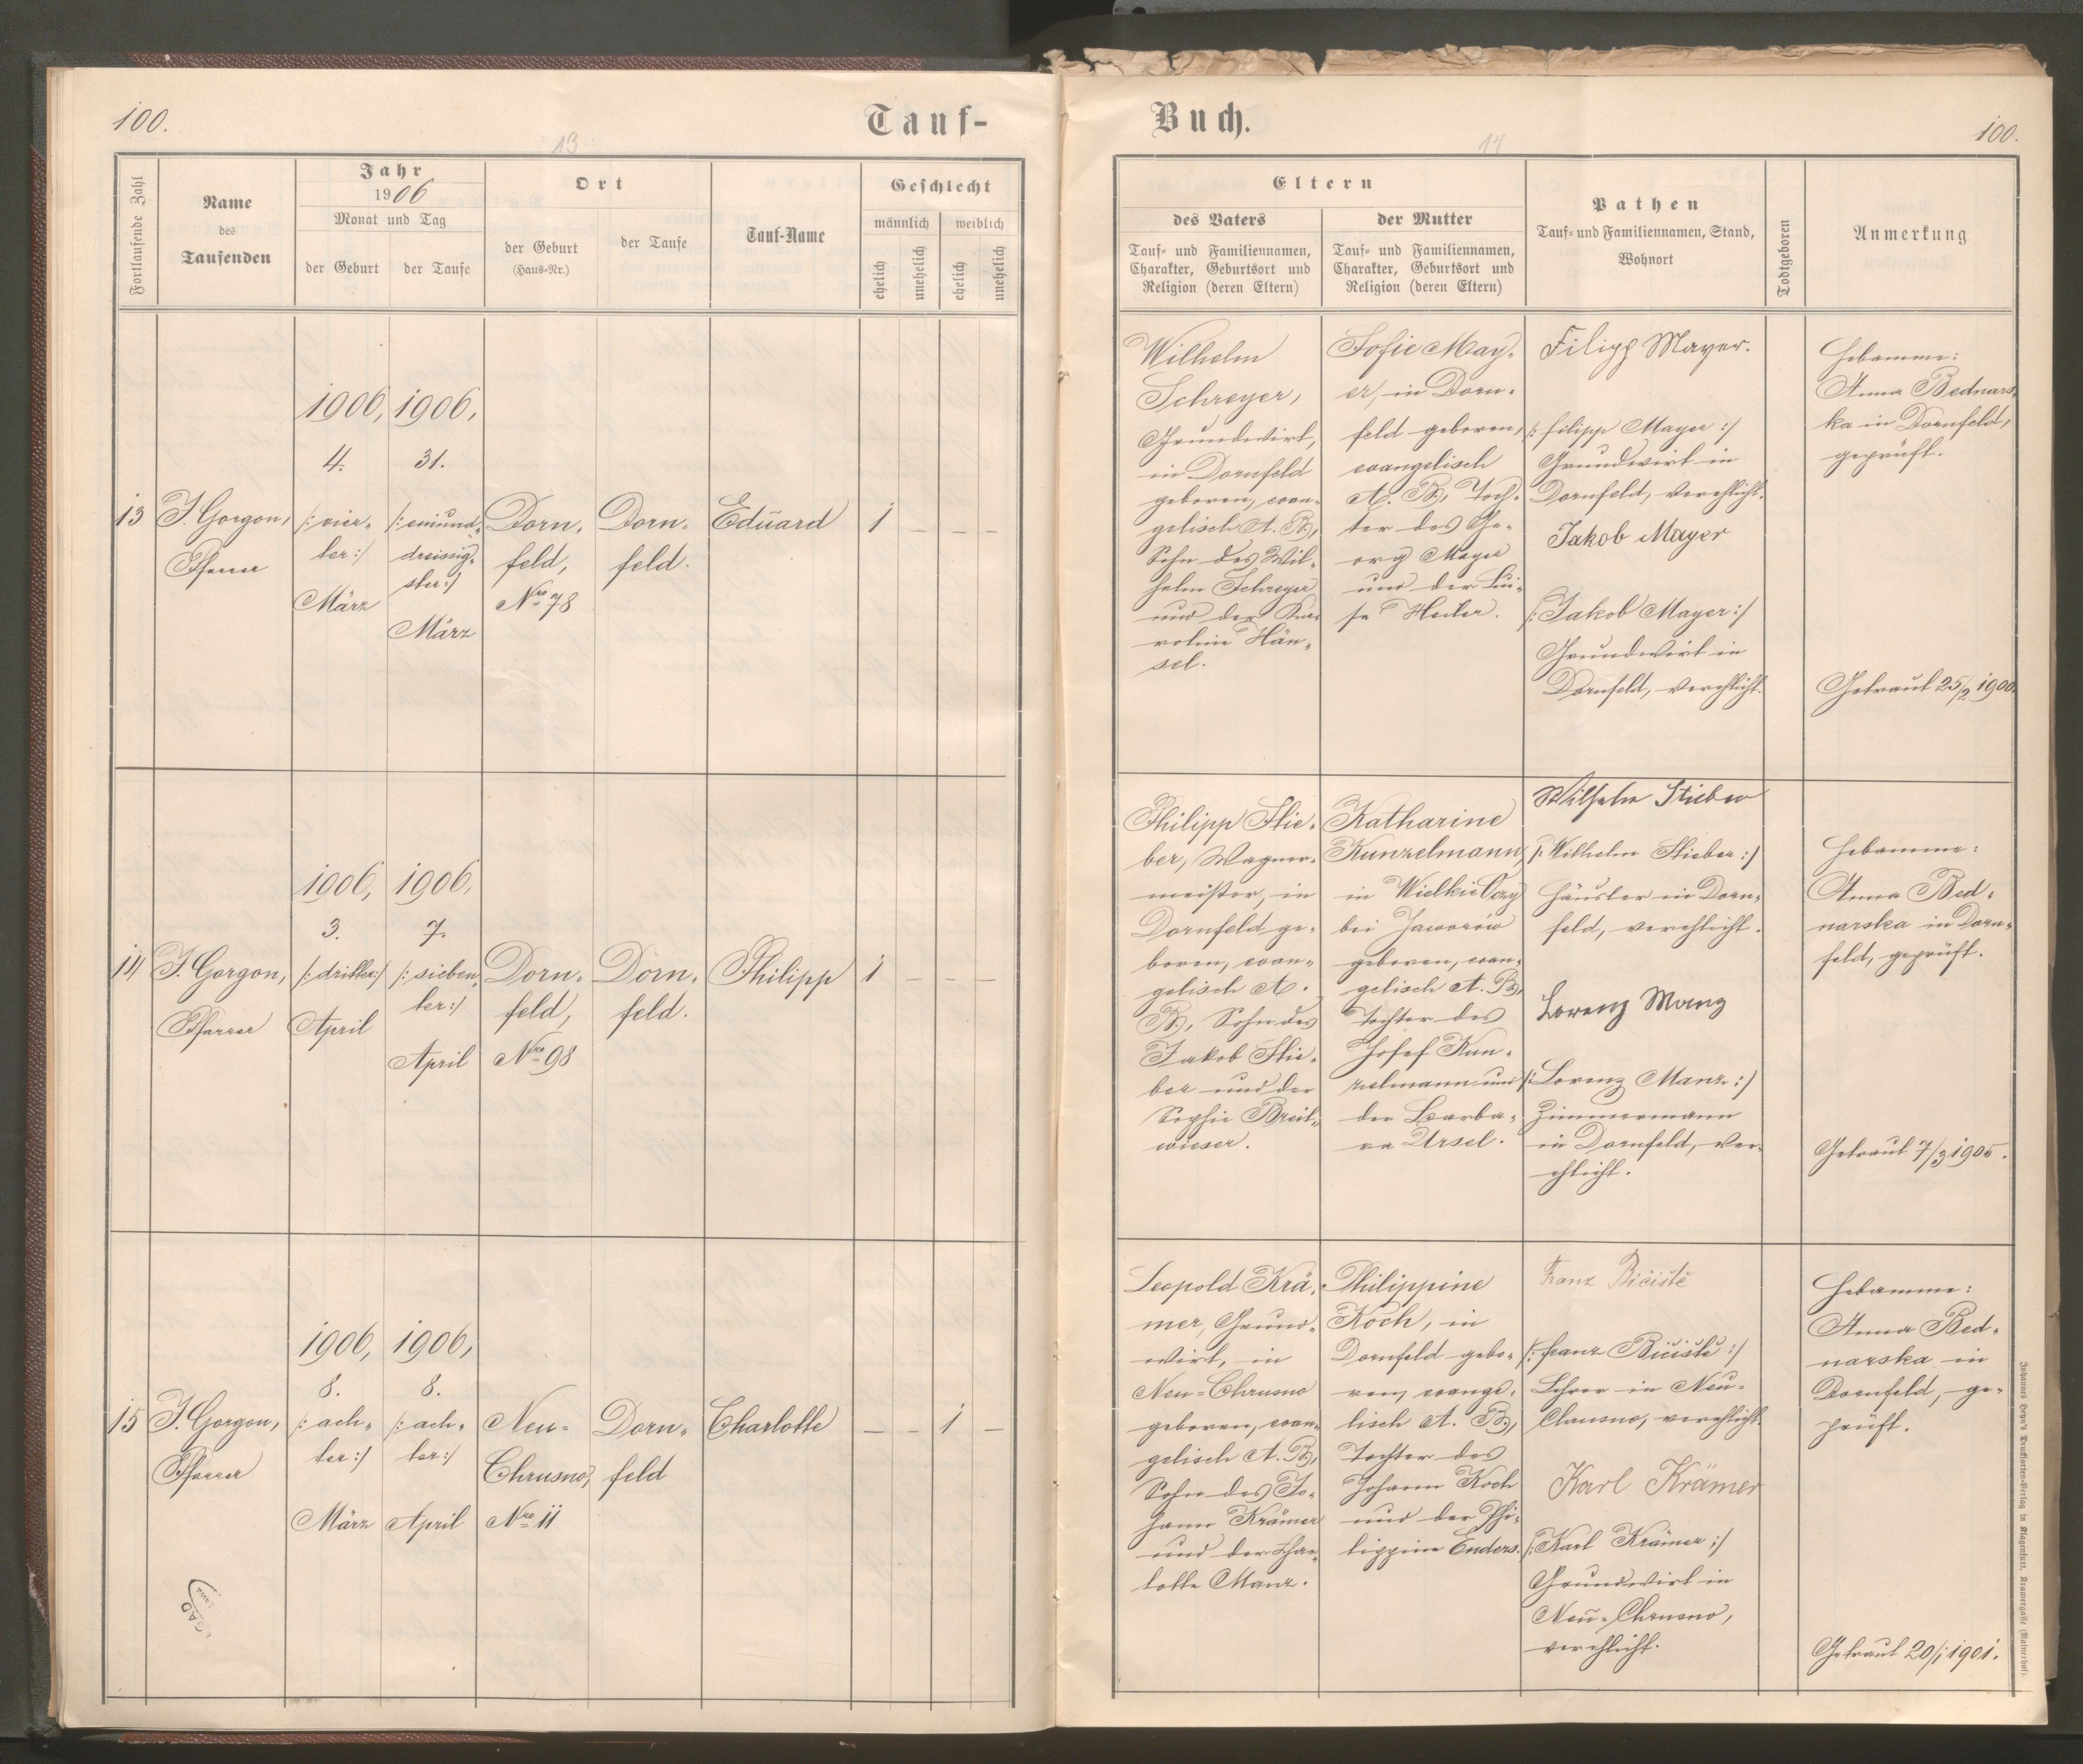 100.
Tauf-
13
Fortlaufende Zahl
Name
des
Taufenden
Jahr
1906
Monat und Tag
der Geburt
der Taufe
Ort
der Geburt
(Haus-Nr.)
der Taufe
Tauf-Name
Geschlecht
männlich
weiblich
ehelich
unehelich
ehelich
unehelich
13
J. Gorgon,
Pfarrer
1906,
4.
/: vier-
ter :/
März
1906,
31.
/: einund-
dreissig-
ster :/
März
Dorn-
feld,
Nro 78
Dorn-
feld.
Eduard
1 — — —
14
J. Gorgon,
Pfarrer
1906,
3.
/: dritter :/
April
1906,
7.
/: sieben-
ter :/
April
Dorn-
feld,
Nro 98
Dorn-
feld.
Philipp
1 — — —
15
J. Gorgon,
Pfarrer
1906,
8.
/: ach-
ter :/
März
1906,
8.
/: ach-
ter :/
April
Neu-
Chrusno,
Nro 11
Dorn-
feld
Charlotte
— — 1 —
Buch.
100.
14
Eltern
des Vaters
Tauf- und Familiennamen,
Charakter, Geburtsort und
Religion (deren Eltern)
der Mutter
Tauf- und Familiennamen,
Charakter, Geburtsort und
Religion (deren Eltern)
Pathen
Tauf- und Familiennamen, Stand,
Wohnort
Todtgeboren
Anmerkung
Wilhelm
Schreyer,
Grundwirt,
in Dornfeld
geboren, evan-
gelisch A. B.,
Sohn des Wil-
helm Schreyer
und der Ka-
roline Hän-
sel.
Sofie May-
er, in Dorn-
feld geboren,
evangelisch
A. B., Toch-
ter des Ge-
org Mayer
und der Lui-
se
Filipp Mayer.
/: Filipp Mayer :/
Grundwirt in
Dornfeld, verehlicht.
Jakob Mayer
/: Jakob Mayer :/
Grundwirt in
Dornfeld, verehlicht.
Hebamme:
Anna Bednars-
ka in Dornfeld,
geprüft.
Getraut 25/2 1900.
Philipp Stie-
ber, Wagner-
meister, in
Dornfeld ge-
boren, evan-
gelisch A.
B., Sohn des
Jakob Stie-
ber und der
Sophie Breit-
wieser.
Katharine
Kunzelmann,
in Wielkie Oczy
bei Jaworów
geboren, evan-
gelisch A. B.,
Tochter des
Josef Kun-
zelmann und
der Barba-
ra Ursel.
Wilhelm Stieber
/: Wilhelm Stieber :/
Häusler in Dorn-
feld, verehlicht.
Lorenz Manz
/: Lorenz Manz :/
Zimmermann
in Dornfeld, ver-
ehlicht.
Hebamme:
Anna Bed-
narska in Dorn-
feld, geprüft.
Getraut 7/3 1905.
Leopold Krä-
mer, Grund-
wirt, in
Neu-Chrusno
geboren, evan-
gelisch A. B.,
Sohn des Jo-
hann Krämer
und der Char-
lotte Manz.
Philippine
Koch, in
Dornfeld gebo-
ren, evange-
lisch A. B.,
Tochter des
Johann Koch
und der Phi-
lippine Enders.
Franz Bičiště
/: Franz Bičiště :/
Lehrer in Neu-
Chrusno, verehlicht.
Karl Krämer
/: Karl Krämer :/
Grundwirt in
Neu-Chrusno,
verehlicht.
Hebamme:
Anna Bed-
narska in
Dornfeld, ge-
prüft.
Getraut 20/1 1901.